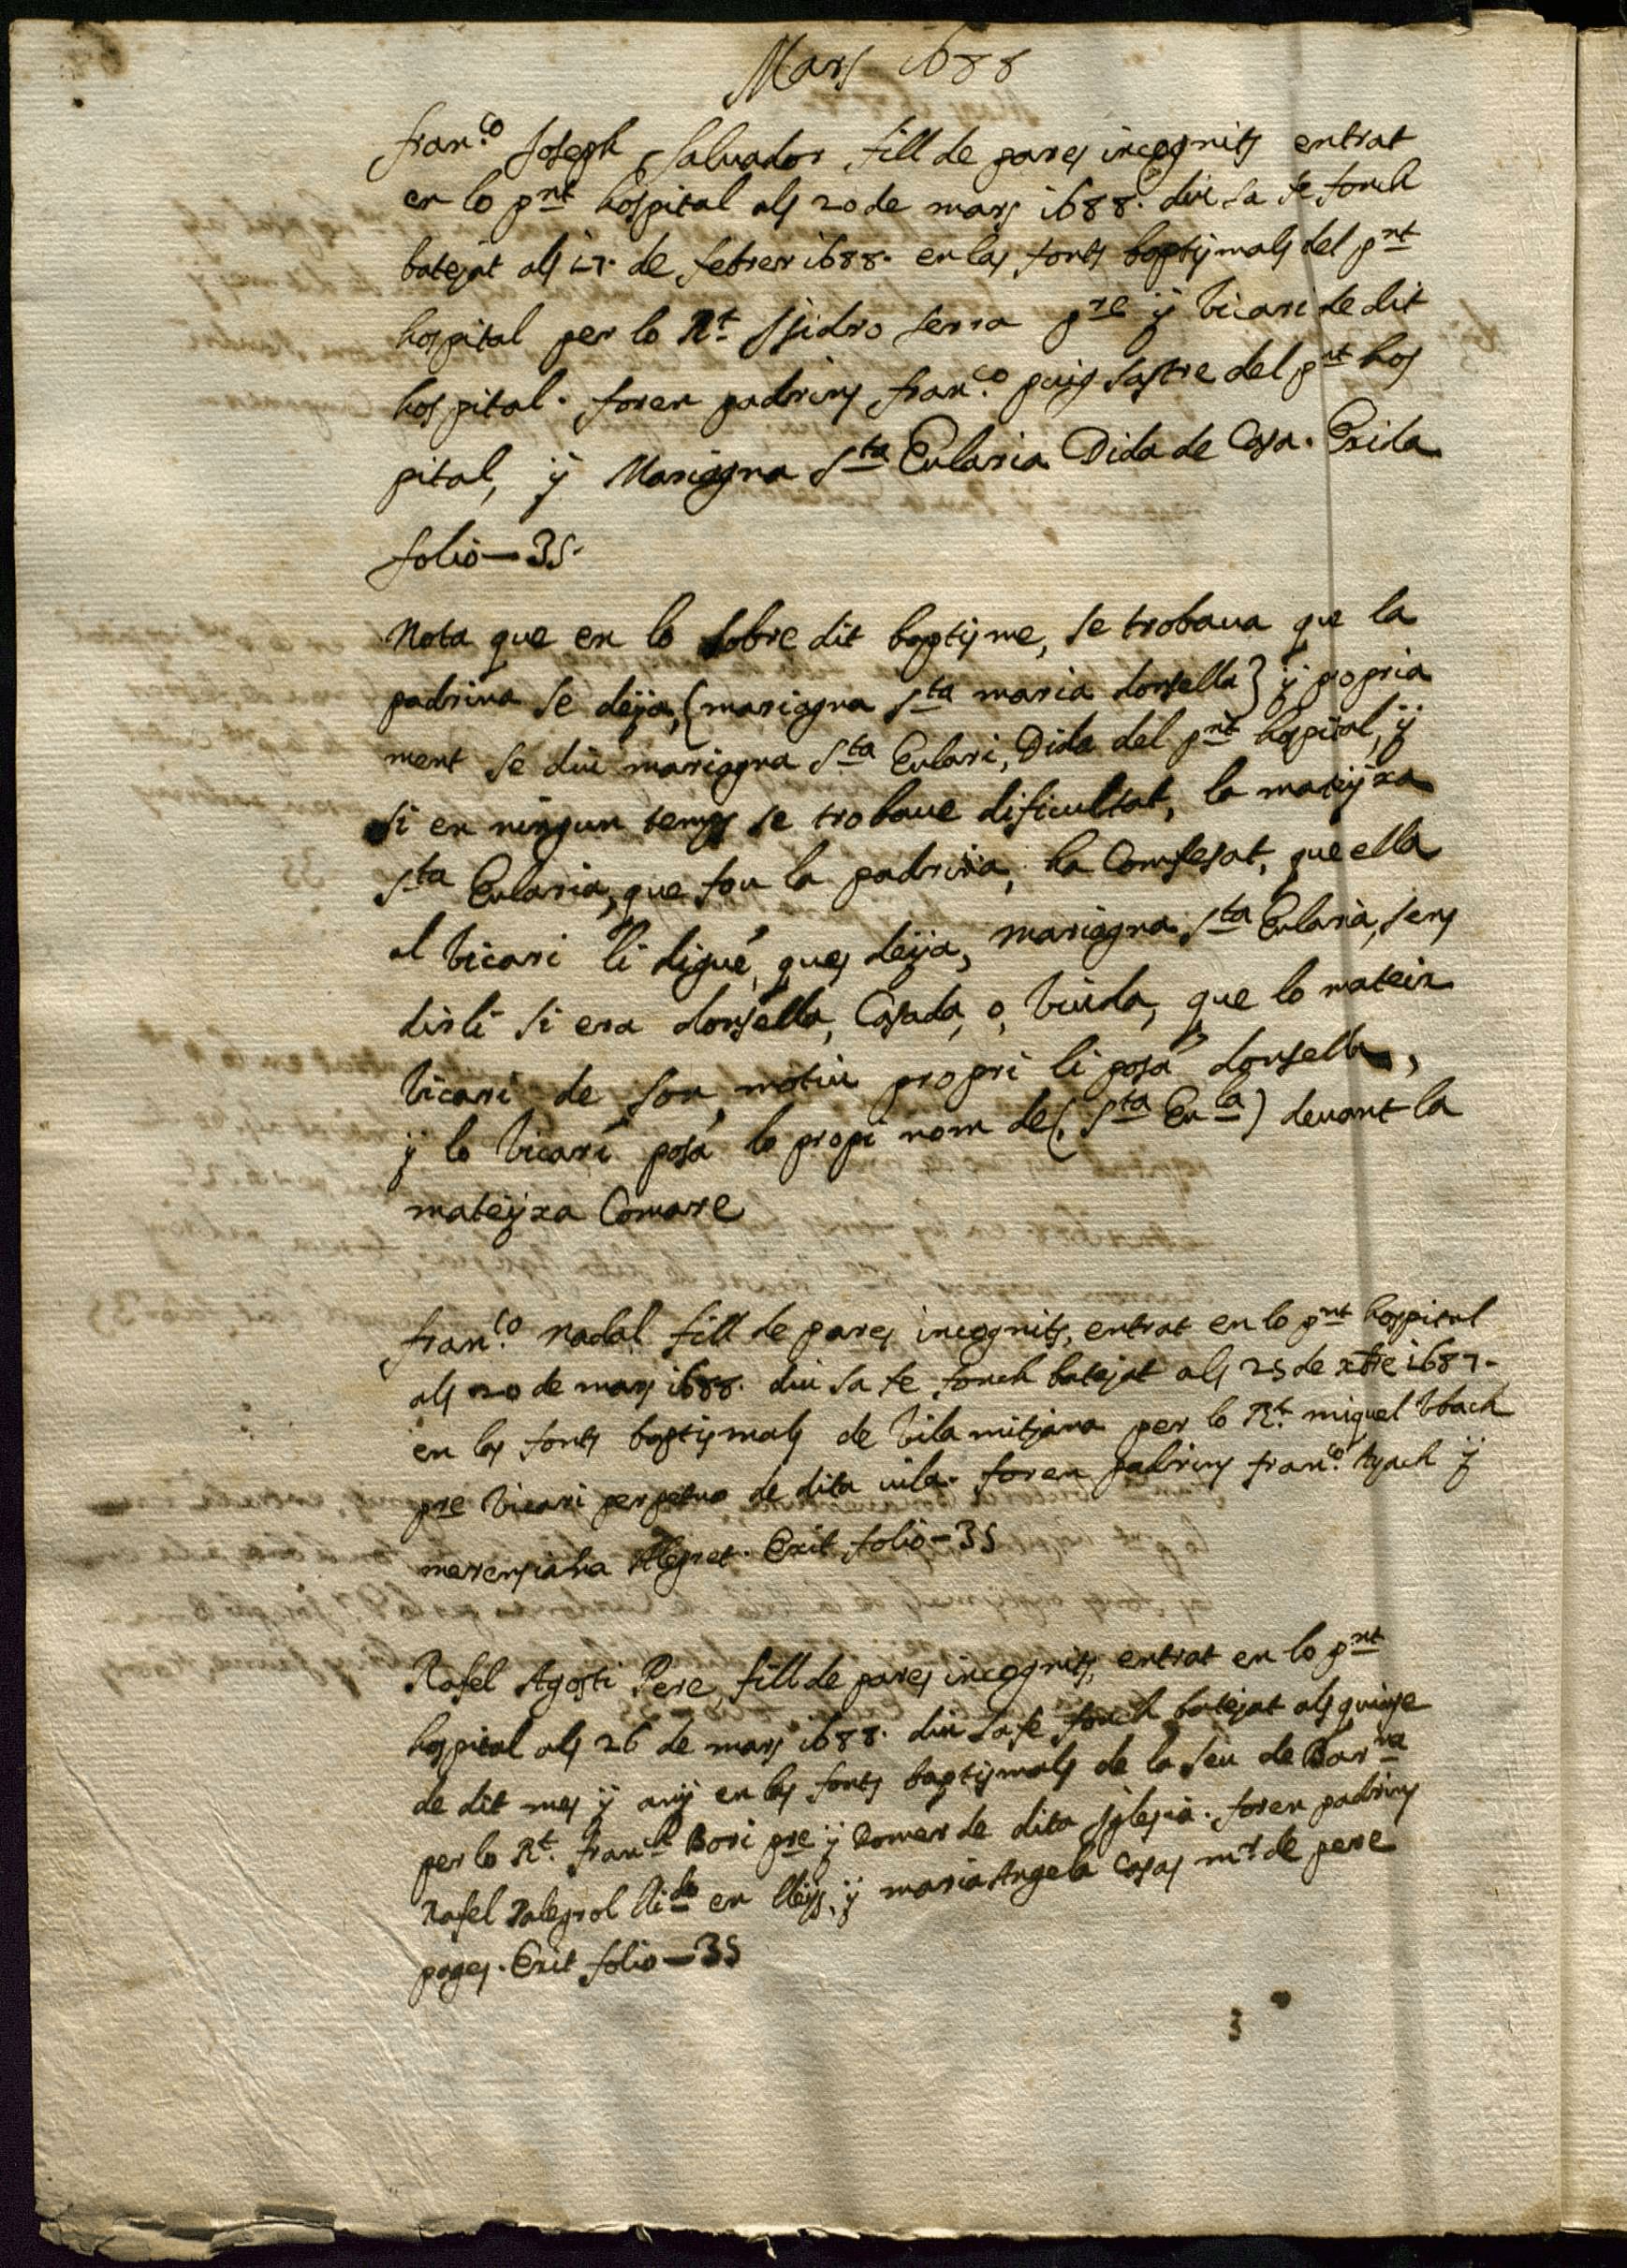 Mars 1688
fran.co Joseph Saluador fill de pares incognits entrat
en lo pnt hospital als 20 de mars 1688. diu sa fe fonch
batejat als 17. de febrer 1688. en las fonts baptismals del pnt
hospital per lo Rt. Isidro serra pre ÿ Vicari de dit
hospital. foren padrins fran.co puig sastre del pnt hos
pital, ÿ Mariagna Sta Eularia Dida de Casa. Exida
folio — 35.
Nota que en lo sobre dit baptisme, se trobaua que la
padrina se deÿa, (mariagna Sta maria donsella) ÿ propria
ment se diu mariagna Sta Eulari, Dida del pnt hospital, ÿ
si en ningun temps se trobaue dificultat, la mateÿxa
Sta Eularia, que fou la padrina, ha Comfesat, que ella
al Vicari li digué, ques deÿa, mariagna Sta Eularia, sens
dirli si era donsella, Casada, o, Viuda, que lo mateix
Vicari de son motiu propri li posá donsella,
ÿ lo Vicari posá lo propi nom de (Sta Eula) deuant la
mateÿxa Comare
fran.co nadal fill de pares incognits, entrat en lo pnt hospital
als 20 de mars 1688. diu sa fe fonch batejat als 25 de xbre 1687.
en las fonts baptismals de Vilamitjana per lo Rt. miquel Vbach
pre Vicari perpetuo de dita vila. foren padrins fran.co ÿ
marensiana Alegret. Exit folio — 35
Rafel Agosti Pere, fill de pares incognits, entrat en lo pnt
hospital als 26 de mars 1688. diu sa fe fonch batejat als quinse
de dit mes ÿ anÿ en las fonts baptismals de la seu de Barna
per lo Rt. franch Bori pre ÿ domer de dita Iglesia. foren padrins
Rafel en lleÿs, ÿ maria Angela Casas mr. de pere
pages. Exit folio — 35